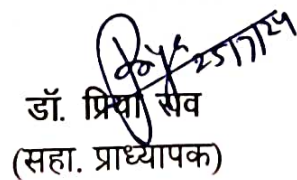 25/7/24
डॉ. प्रिया सेव
(सहा. प्राध्यापक)